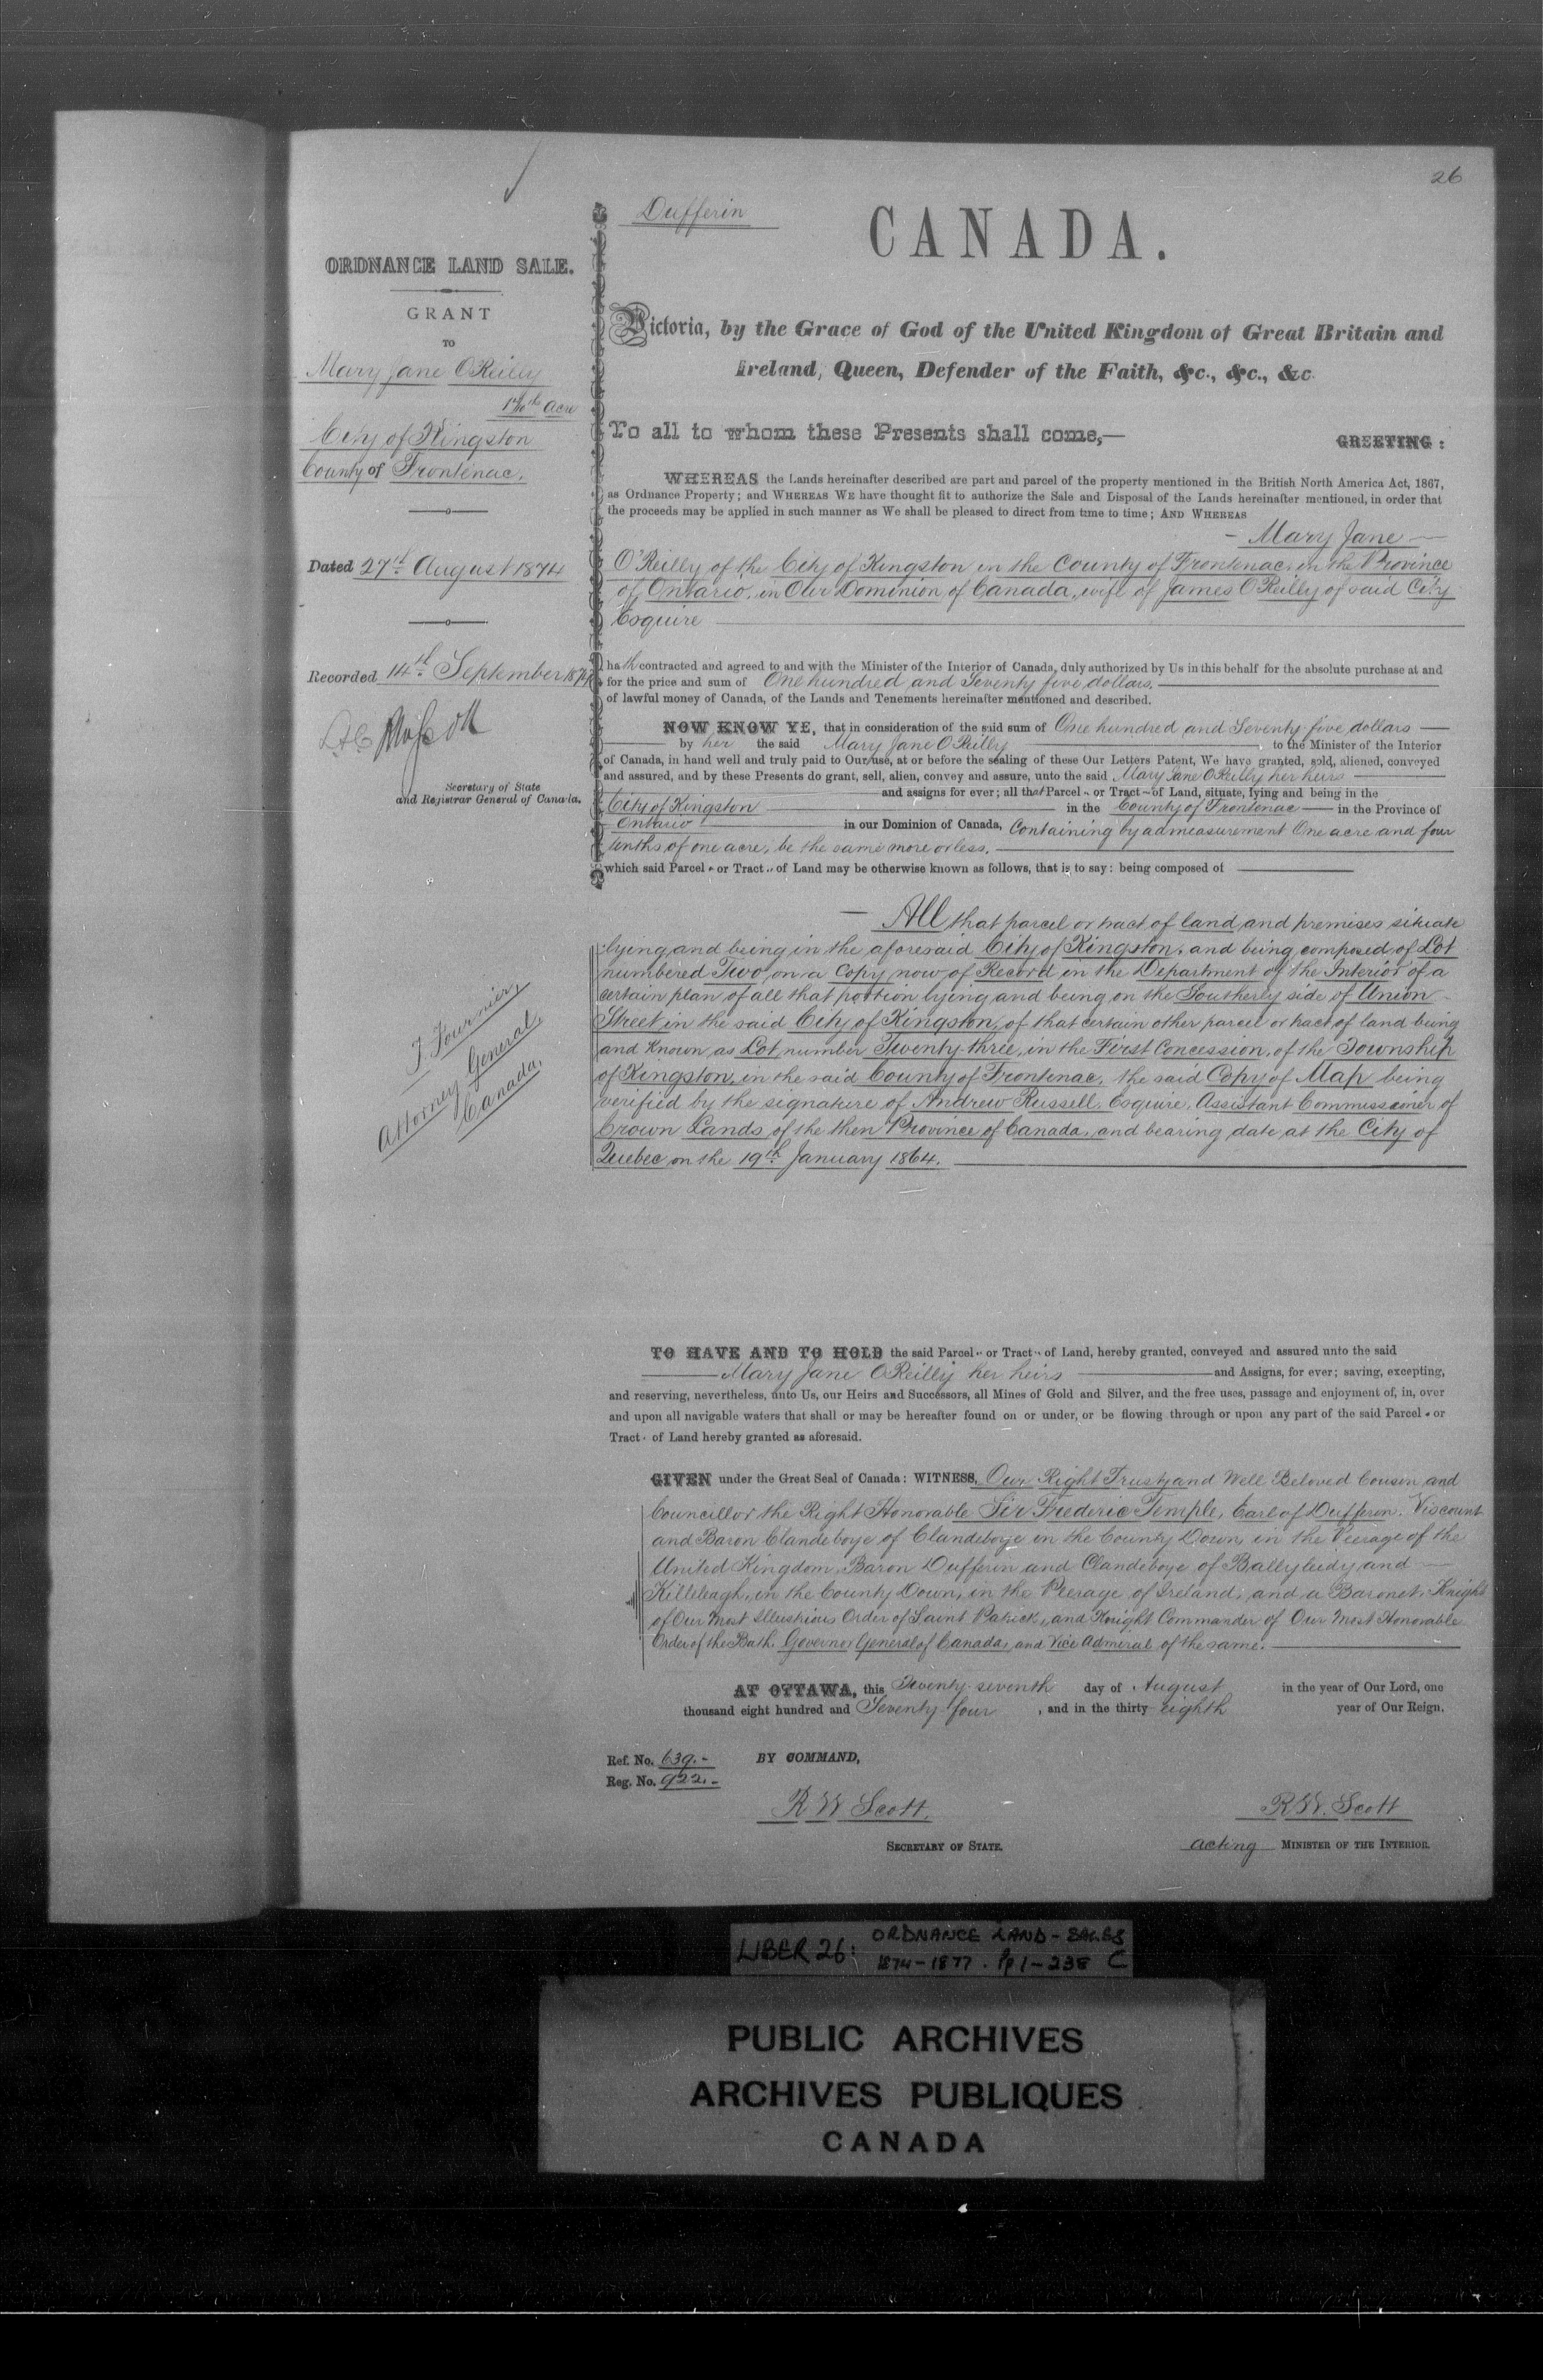 26
Dufferin
CANADA.
ORDNANCE LAND SALE.
GRANT
TO
Mary Jane O'Reilly
1 4/10th Acre
City of Kingston
County of Frontenac.
Dated 27th August 1874
Recorded 14th September 1874
Secretary of State
and Registrar General of Canada.
J. Fournier,
Attorney General,
Canada.
Victoria, by the Grace of God of the United Kingdom of Great Britain and
Ireland, Queen, Defender of the Faith, &c., &c., &c.
To all to whom these Presents shall come,—
GREETING:
WHEREAS the Lands hereinafter described are part and parcel of the property mentioned in the British North America Act, 1867,
as Ordnance Property; and WHEREAS WE have thought fit to authorize the Sale and Disposal of the Lands hereinafter mentioned, in order that
the proceeds may be applied in such manner as We shall be pleased to direct from time to time; AND WHEREAS
— Mary Jane —
O'Reilly of the City of Kingston in the County of Frontenac, in the Province
of Ontario, in Our Dominion of Canada, wife of James O'Reilly of said City
Esquire
hath contracted and agreed to and with the Minister of the Interior of Canada, duly authorized by Us in this behalf for the absolute purchase at and
for the price and sum of One hundred and Seventy five dollars.
of lawful money of Canada, of the Lands and Tenements hereinafter mentioned and described.
NOW KNOW YE, that in consideration of the said sum of One hundred and Seventy five dollars —
by her the said Mary Jane O'Reilly , to the Minister of the Interior
of Canada, in hand well and truly paid to Our use, at or before the sealing of these Our Letters Patent, We have granted, sold, aliened, conveyed
and assured, and by these Presents do grant, sell, alien, convey and assure, unto the said Mary Jane O'Reilly her heirs
and assigns for ever; all that Parcel or Tract of Land, situate, lying and being in the
City of Kingston in the County of Frontenac — in the Province of
Ontario in our Dominion of Canada, Containing by admeasurement One acre and four
tenths of one acre, be the same more or less.
which said Parcel or Tract of Land may be otherwise known as follows, that is to say: being composed of
— All that parcel or tract of land and premises situate
lying and being in the aforesaid City of Kingston, and being composed of Lot
numbered Two on a Copy now of Record in the Department of the Interior of a
certain plan of all that portion lying and being on the Southerly side of Union
Street in the said City of Kingston, of that certain other parcel or tract of land being
and Known as Lot number Twenty-three, in the First Concession, of the Township
of Kingston, in the said County of Frontenac, the said Copy of Map being
verified by the signature of Andrew Russell, Esquire, Assistant Commissioner of
Crown Lands of the then Province of Canada, and bearing date at the City of
Quebec on the 19th January 1864.
TO HAVE AND TO HOLD the said Parcel or Tract of Land, hereby granted, conveyed and assured unto the said
Mary Jane O'Reilly her heirs and Assigns, for ever; saving, excepting,
and reserving, nevertheless, unto Us, our Heirs and Successors, all Mines of Gold and Silver, and the free uses, passage and enjoyment of, in, over
and upon all navigable waters that shall or may be hereafter found on or under, or be flowing through or upon any part of the said Parcel or
Tract of Land hereby granted as aforesaid.
GIVEN under the Great Seal of Canada: WITNESS, Our Right Trusty and Well Beloved Cousin and
Councillor the Right Honorable Sir Frederic Temple, Earl of Dufferin, Viscount
and Baron Clandeboye of Clandeboye in the County Down, in the Peerage of the
United Kingdom, Baron Dufferin and Clandeboye of Ballyleidy and —
Killeleagh, in the County Down, in the Peerage of Ireland, and a Baronet, Knight
of Our Most Illustrious Order of Saint Patrick, and Knight Commander of Our Most Honorable
Order of the Bath, Governor General of Canada, and Vice Admiral of the same.
AT OTTAWA, this Twenty-seventh day of August in the year of Our Lord, one
thousand eight hundred and Seventy four , and in the thirty eighth year of Our Reign.
Ref. No. 639.-
BY COMMAND,
Reg. No. 922.-
R W Scott.
R. W. Scott
SECRETARY OF STATE.
acting MINISTER OF THE INTERIOR.
LIBER 26: ORDNANCE LAND-SALES
1874-1877. Pp 1-238 C
PUBLIC ARCHIVES
ARCHIVES PUBLIQUES
CANADA